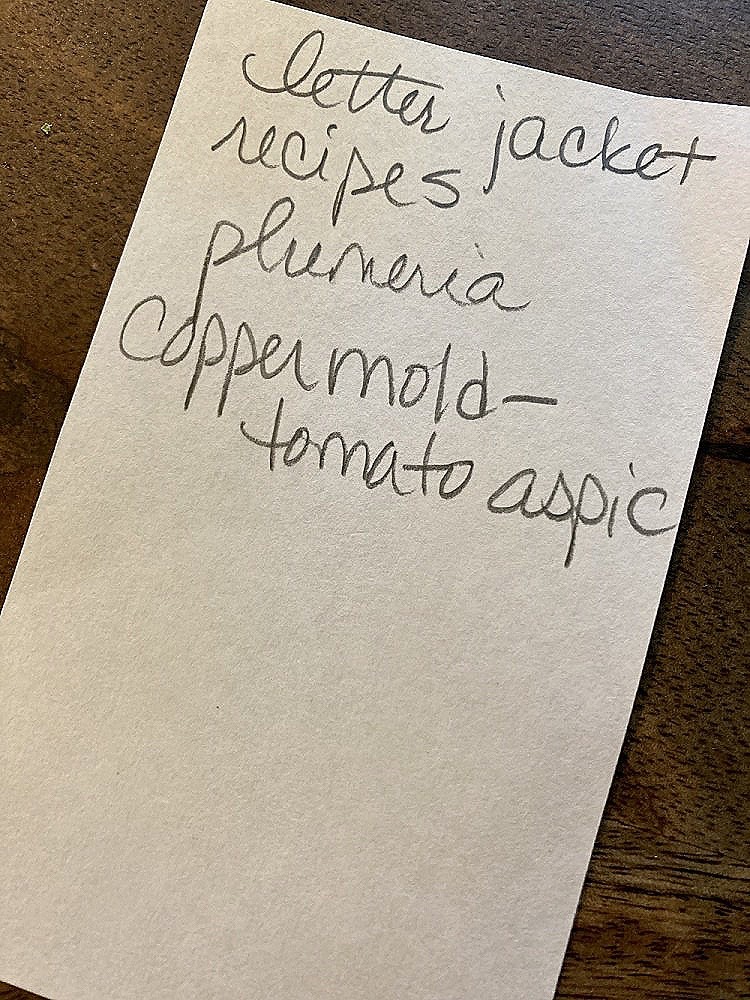 letter jacket
recipes
plumeria
copper mold-
tomato aspic